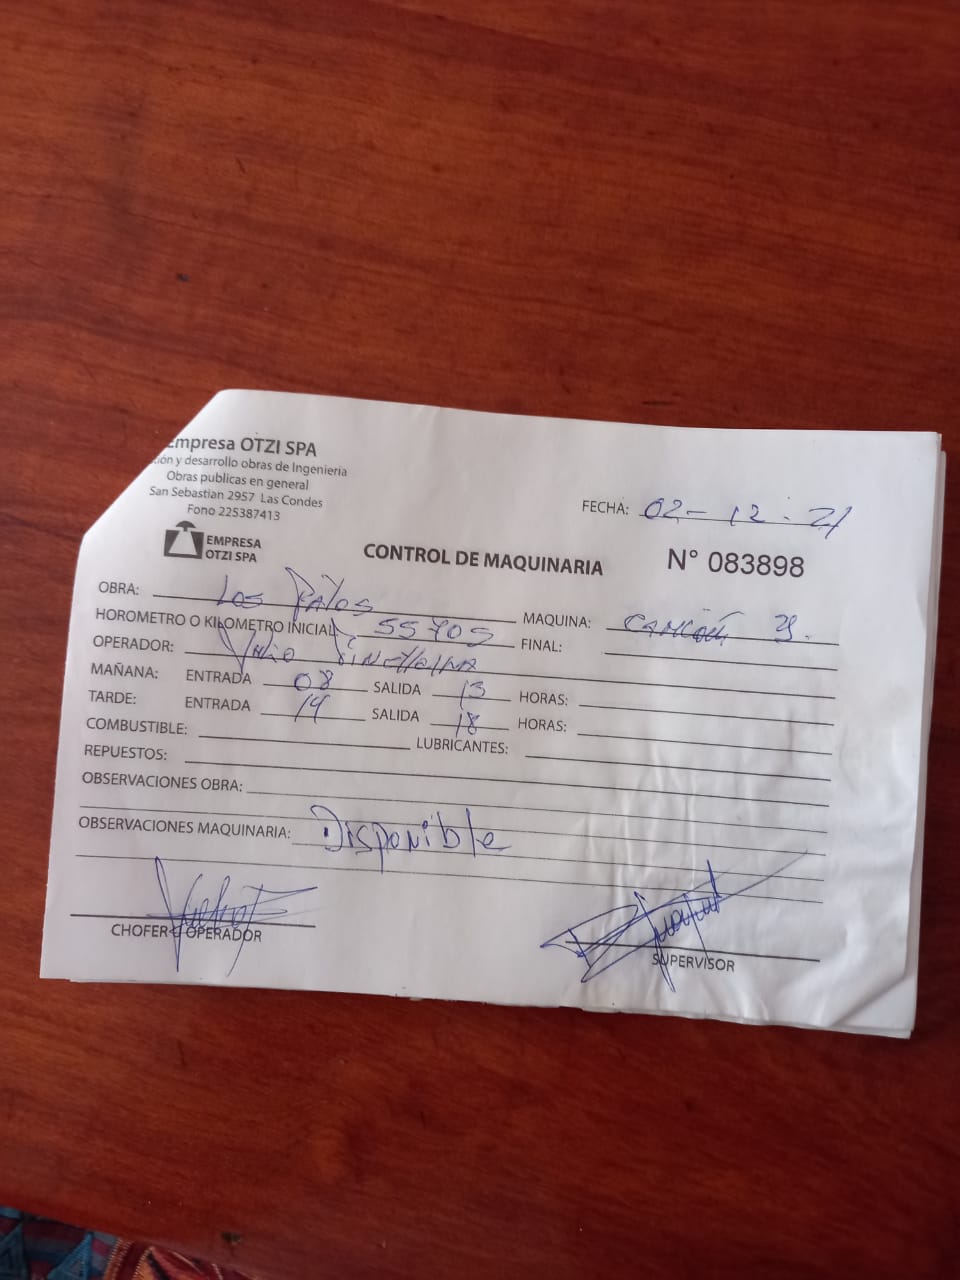 Empresa OTZI SPA
ión y desarrollo obras de Ingenieria
Obras publicas en general
San Sebastian 2957 Las Condes
Fono 225387413
EMPRESA
OTZI SPA
FECHA: 02-12-21
CONTROL DE MAQUINARIA N° 083898
OBRA: Los Patos MAQUINA: CAMION
HOROMETRO O KILOMETRO INICIAL 55705 FINAL:
OPERADOR:
MAÑANA: ENTRADA 08 SALIDA 13 HORAS:
TARDE: ENTRADA 14 SALIDA 18 HORAS:
COMBUSTIBLE: LUBRICANTES:
REPUESTOS:
OBSERVACIONES OBRA:
OBSERVACIONES MAQUINARIA: Disponible
CHOFER U OPERADOR SUPERVISOR